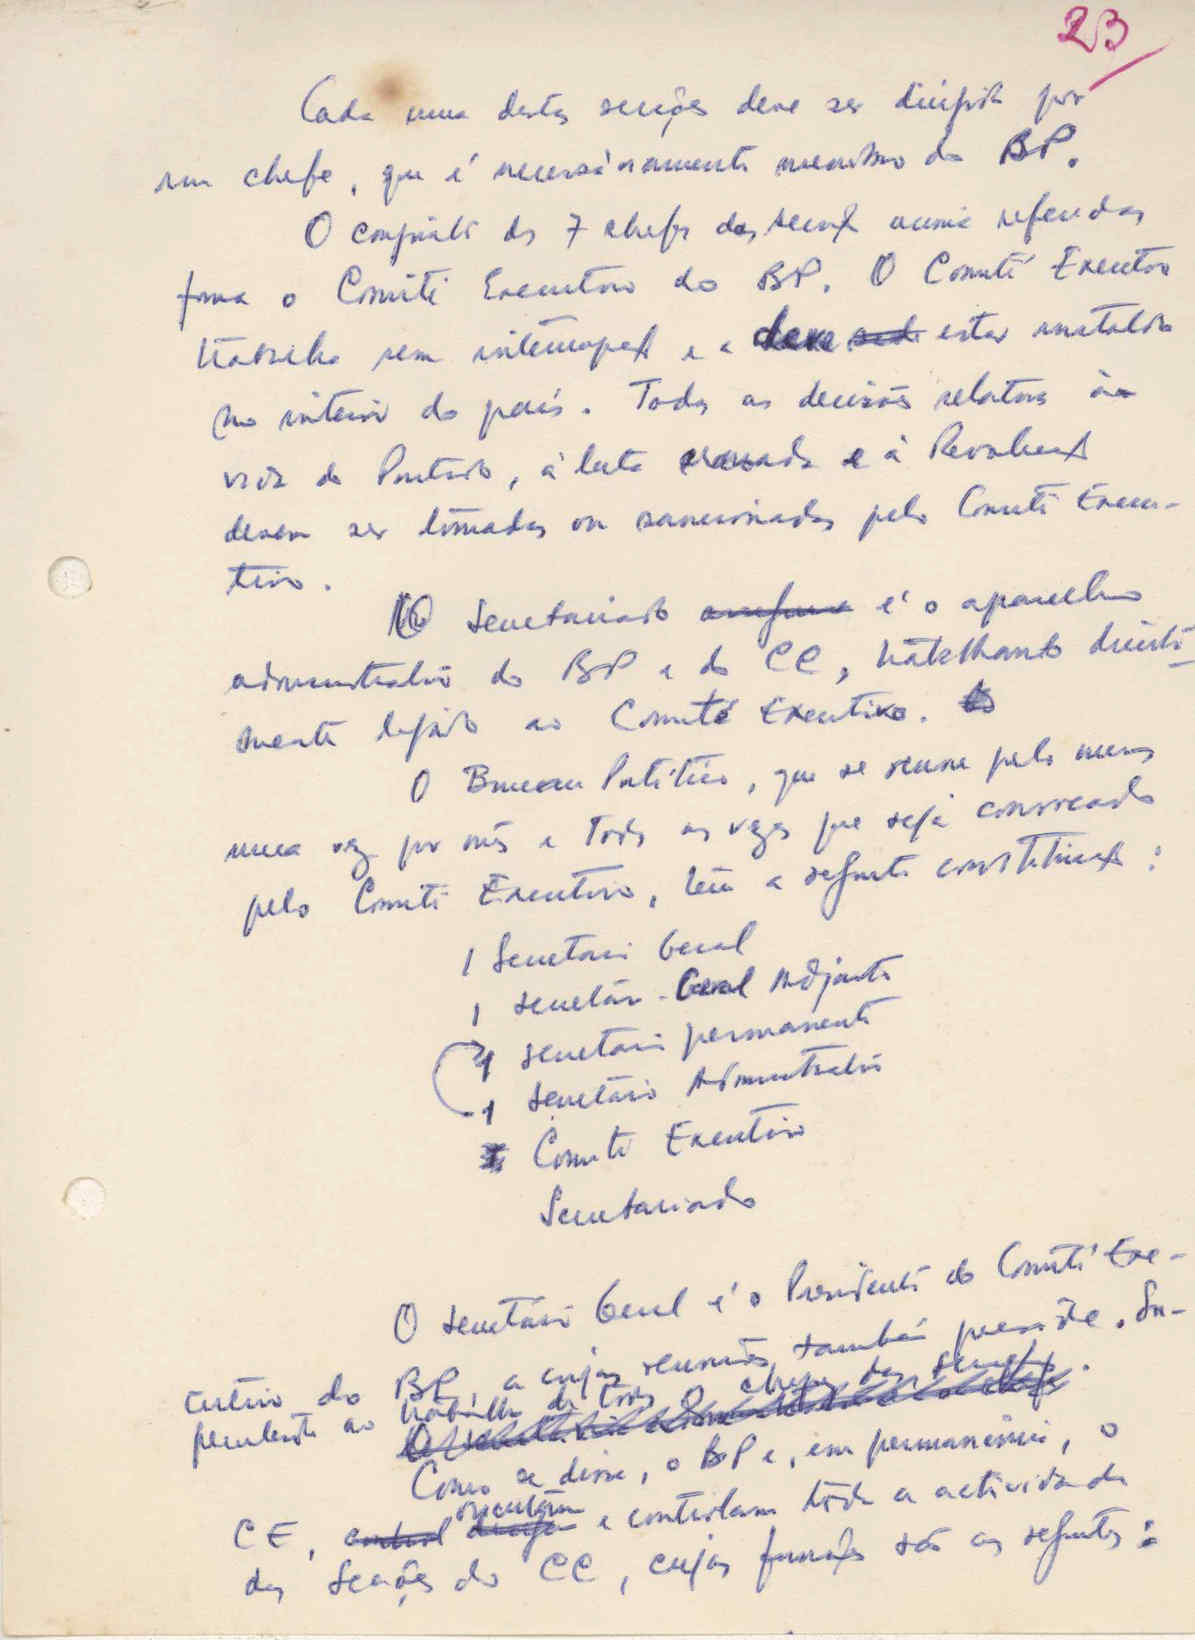 23
Cada uma destas secções deve ser dirigida por
um chefe, que é necessàriamente membro do BP.
O conjunto dos 7 chefes das secções acima referidas
forma o Comité Executivo do BP. O Comité Executivo
trabalha sem interrupção e deve estar instalado
no interior do país. Todas as decisões relativas à
vida do Partido, à luta armada e à Revolução
devem ser tomadas ou sancionadas pelo Comité Execu-
tivo.
O Secretariado é o aparelho
administrativo do BP e do CC, trabalhando directa-
mente ligado ao Comité Executivo.
O Bureau Político, que se reune pelo menos
uma vez por mês e todas as vezes que seja convocado
pelo Comité Executivo, tem a seguinte constituição:
1 Secretário Geral
1 secretário-Geral Adjunto
1 secretário permanente
1 secretário Administrativo
Comité Executivo
Secretariado
O secretário Geral é o Presidente do Comité Exe-
cutivo do BP, a cujas reuniões também preside. Su-
perintende ao trabalho de todos os chefes das secções.
Como se disse, o BP e, em permanência, o
CE, orientam e controlam toda a actividade
das Secções do CC, cujas funções são as seguintes: